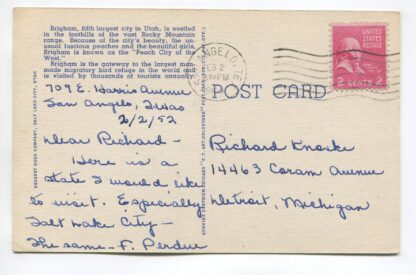 Brigham, fifth largest city in Utah, is nestled
in the foothills of the vast Rocky Mountain
range. Because of the city's beauty, the un-
usual luscious peaches and the beautiful girls,
Brigham is known as the "Peach City of the
West."
Brigham is the gateway to the largest man-
made migratory bird refuge in the world and
is visited by thousands of tourists annually.
709 E. Harris Avenue
San Angelo, Texas
2/2/52
Dear Richard -
Here is a
state I would like
to visit. Especially
Salt Lake City -
The same - F. Perdue
DESERET BOOK COMPANY, SALT LAKE CITY, UTAH
ANGELO, TE
FEB 2
PM
UNITED STATES
POSTAGE
2 CENTS 2
POST CARD
Richard Knorke
14463 Coram Avenue
Detroit, Michigan